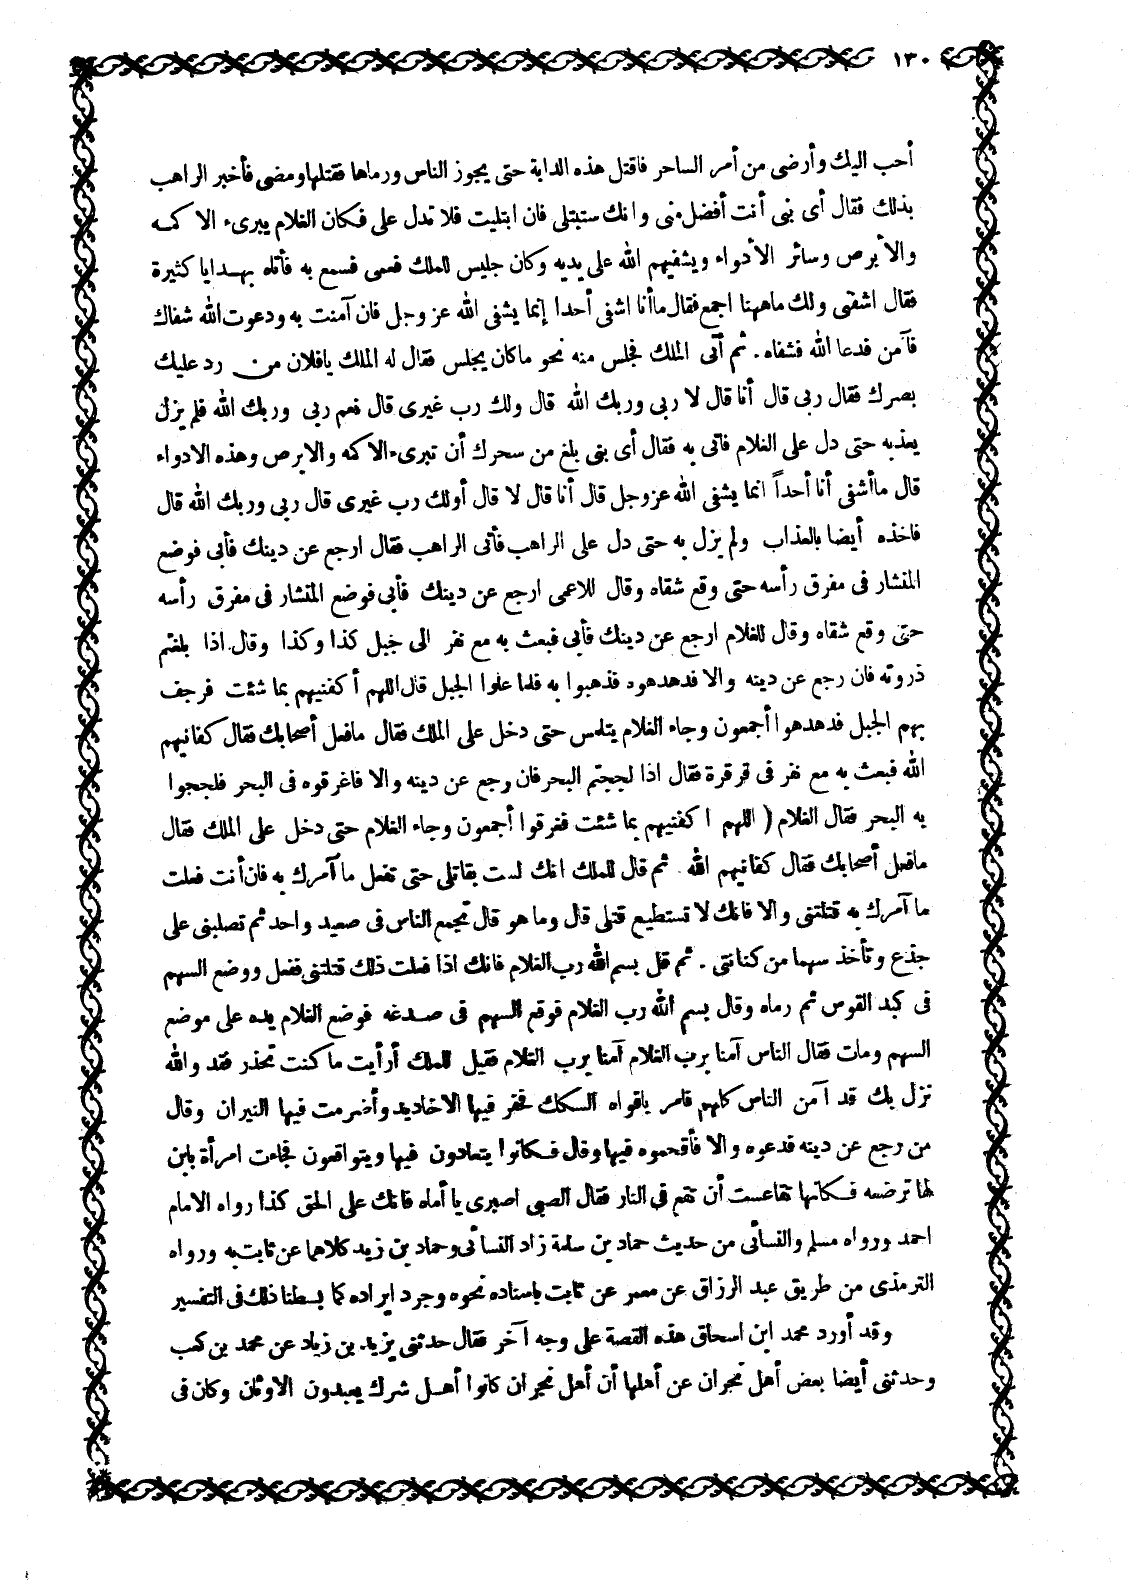 ١٣٠
أحب اليك وأرضى من أمر الساحر فاقتل هذه الدابة حتى يجوز الناس ورماها فقتلها ومضى فأخبر الراهب
بذلك فقال أى بنى أنت أفضل منى وانك ستبتلى فان ابتليت فلا تدل على فكان الغلام يبرىء الا كمه
والأبرص وسائر الأدواء ويشفيهم الله على يديه وكان جليس للملك فعمى فسمع به فأتاه بهدايا كثيرة
فقال اشفنى ولك ماههنا اجمع فقال ماأنا اشفى أحدا إنما يشفى الله عز وجل فان آمنت به ودعوت الله شفاك
فآمن فدعا الله فشفاه . ثم أتى الملك فجلس منه نحو ماكان يجلس فقال له الملك يافلان من رد عليك
بصرك فقال ربى قال أنا قال لا ربى وربك الله قال ولك رب غيرى قال نعم ربى وربك الله فلم يزل
يعذبه حتى دل على الغلام فأتى به فقال أى بنى بلغ من سحرك أن تبرىء الاكه والابرص وهذه الادواء
قال ماأشفى أنا أحداً انما يشفى الله عزوجل قال أنا قال لا قال أولك رب غيرى قال ربى وربك الله قال
فاخذه أيضا بالعذاب ولم يزل به حتى دل على الراهب فأتى الراهب فقال ارجع عن دينك فأبى فوضع
المنشار فى مفرق رأسه حتى وقع شقاه وقال للاعمى ارجع عن دينك فأبى فوضع المنشار فى مفرق رأسه
حتى وقع شقاه وقال للغلام ارجع عن دينك فأبى فبعث به مع نفر الى جبل كذا وكذا وقال اذا بلغتم
ذروته فان رجع عن دينه والا فدهدهوه فذهبوا به فلما علوا الجبل قال اللهم أكفنيهم بما شئت فرجف
بهم الجبل فدهدهوا أجمعون وجاء الغلام يتلمس حتى دخل على الملك فقال مافعل أصحابك فقال كفانيهم
الله فبعث به مع نفر فى قرقرة فقال اذا لججتم البحر فان رجع عن دينه والا فاغرقوه فى البحر فلججوا
به البحر فقال الغلام ( اللهم ا كفنيهم بما شئت فغرقوا أجمعون وجاء الغلام حتى دخل على الملك فقال
مافعل أصحابك فقال كفانيهم الله . ثم قال للملك انك لست بقاتلى حتى تفعل ما آمرك به فان أنت فعلت
ما آمرك به قتلتنى والا فانك لا تستطيع قتلى قال وما هو قال تجمع الناس فى صعيد واحد ثم تصلبنى على
جذع وتأخذ سهما من كنانتى . ثم قل بسم الله رب الغلام فانك اذا فعلت ذلك قتلتنى ففعل ووضع السهم
فى كبد القوس ثم رماه وقال بسم الله رب الغلام فوقع السهم فى صدغه فوضع الغلام يده على موضع
السهم ومات فقال الناس آمنا برب الغلام آمنا برب الغلام فقيل للملك أرأيت ما كنت تحذر فقد والله
نزل بك قد آمن الناس كلهم فامر بافواه السكك فحفر فيها الاخاديد وأضرمت فيها النيران وقال
من رجع عن دينه فدعوه والا فأقحموه فيها وقال فكانوا يتعادون فيها ويتواقعون فجاءت امرأة بابن
لها ترضعه فكانها تقاعست أن تقع فى النار فقال الصبى اصبرى يا أماه فانك على الحق كذا رواه الامام
احمد ورواه مسلم والنسائى من حديث حماد بن سلمة زاد النسائى وحماد بن زيد كلاهما عن ثابت به ورواه
الترمذى من طريق عبد الرزاق عن معمر عن ثابت باسناده نحوه وجرد ايراده كما بسطنا ذلك فى التفسير
وقد أورد محمد ابن اسحاق هذه القصة على وجه آخر فقال حدثنى يزيد بن زياد عن محمد بن كعب
وحدثنى أيضا بعض أهل نجران عن أهلها أن أهل نجران كانوا أهل شرك يعبدون الاوثان وكان فى